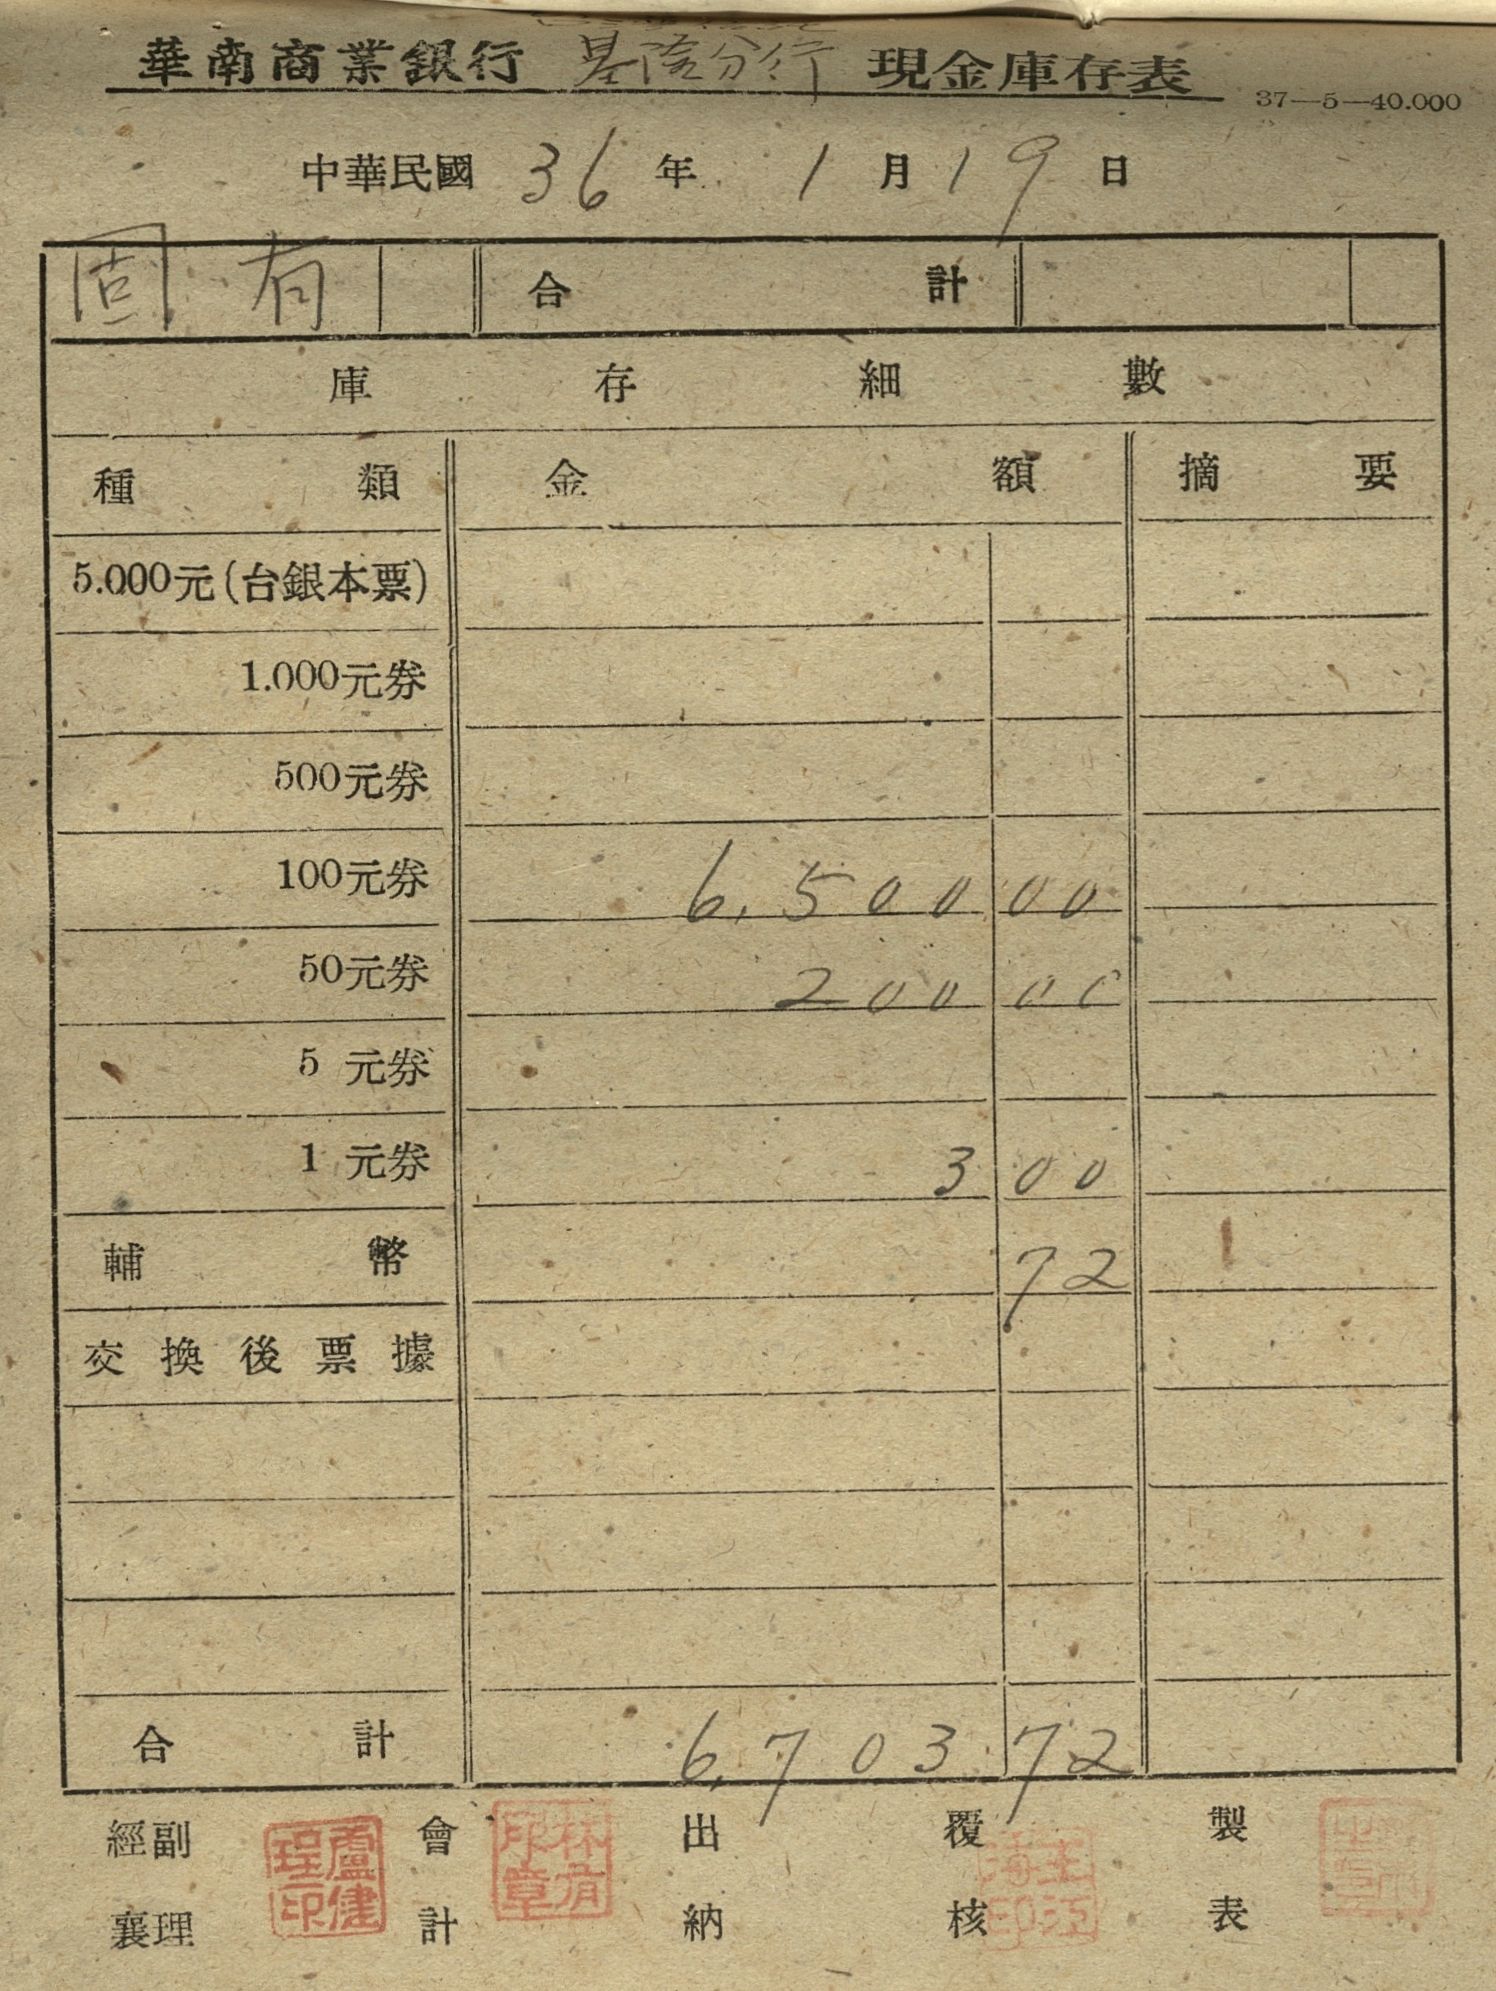 華南商業銀行 基隆分行 現金庫存表
37—5—40.000
中華民國 36 年 1 月 19 日
固有 合計
庫存細數
種類 金額 摘要
5.000元(台銀本票)
1.000元券
500元券
100元券 6,500 00
50元券 200 00
5 元券
1 元券 3 00
輔幣 72
交換後票據
合計 6,703 72
經副襄理 會計 出納 覆核 製表
盧健程印
林有印章